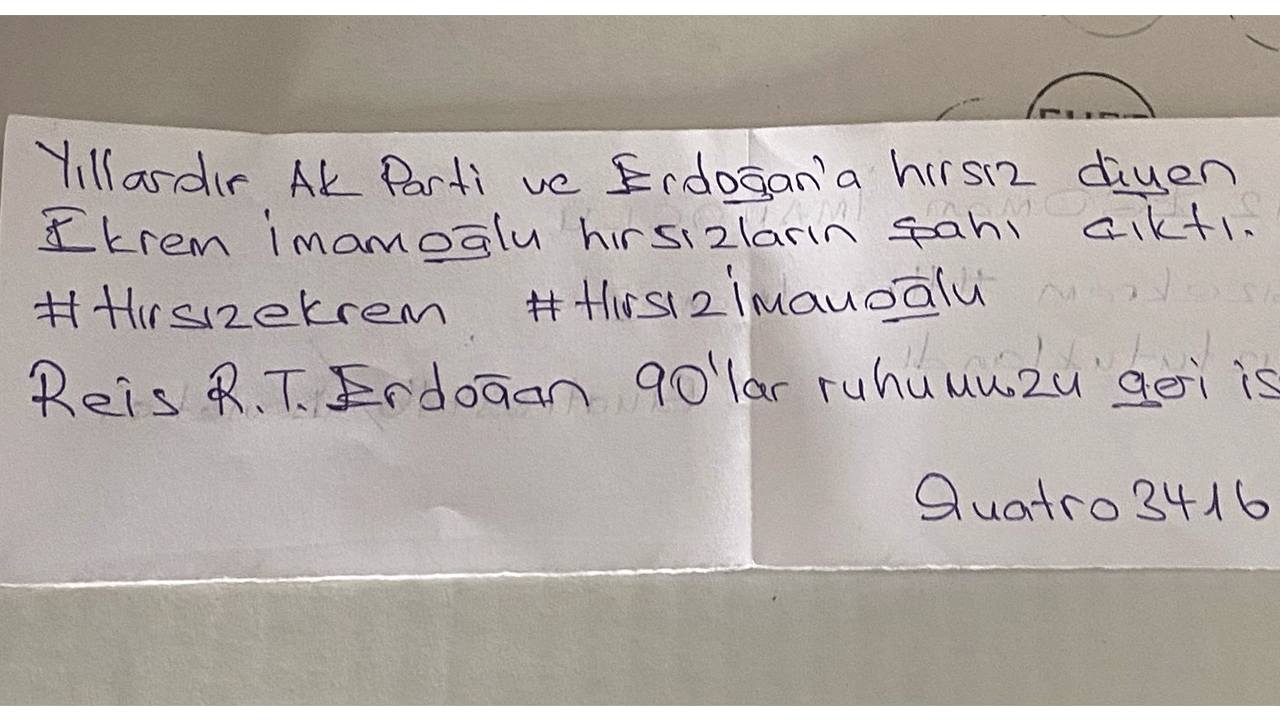 Yıllardır Ak Parti ve Erdoğan'a hırsız diyen
Ekrem İmamoğlu hırsızların şahı çıktı.
#Hırsızekrem #Hırsızİmamoğlu
Reis R.T. Erdoğan 90'lar ruhumuzu geri is
Quatro3416